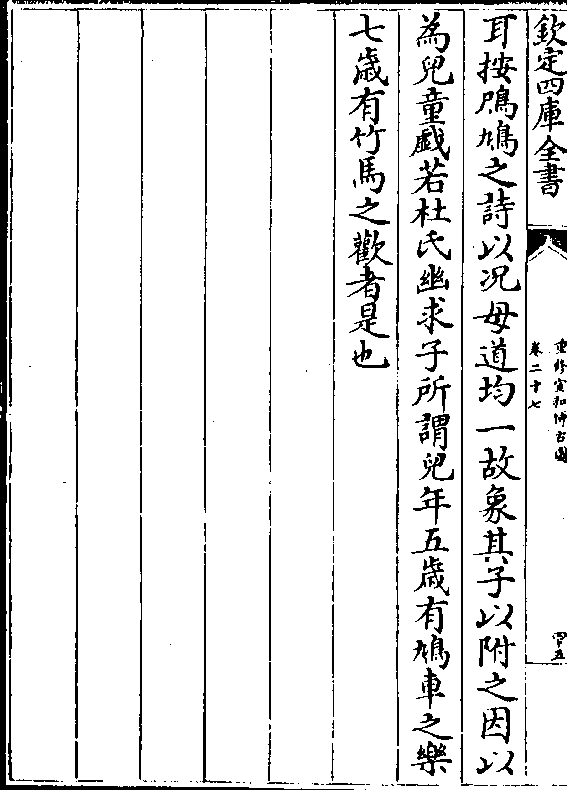 欽定四庫全書
重修宣和博古圖
卷二十七
四五
耳按鳲鳩之詩以况母道均一故象其子以附之因以
為兒童戯若杜氏幽求子所謂兒年五歲有鳩車之樂
七歲有竹馬之歡者是也